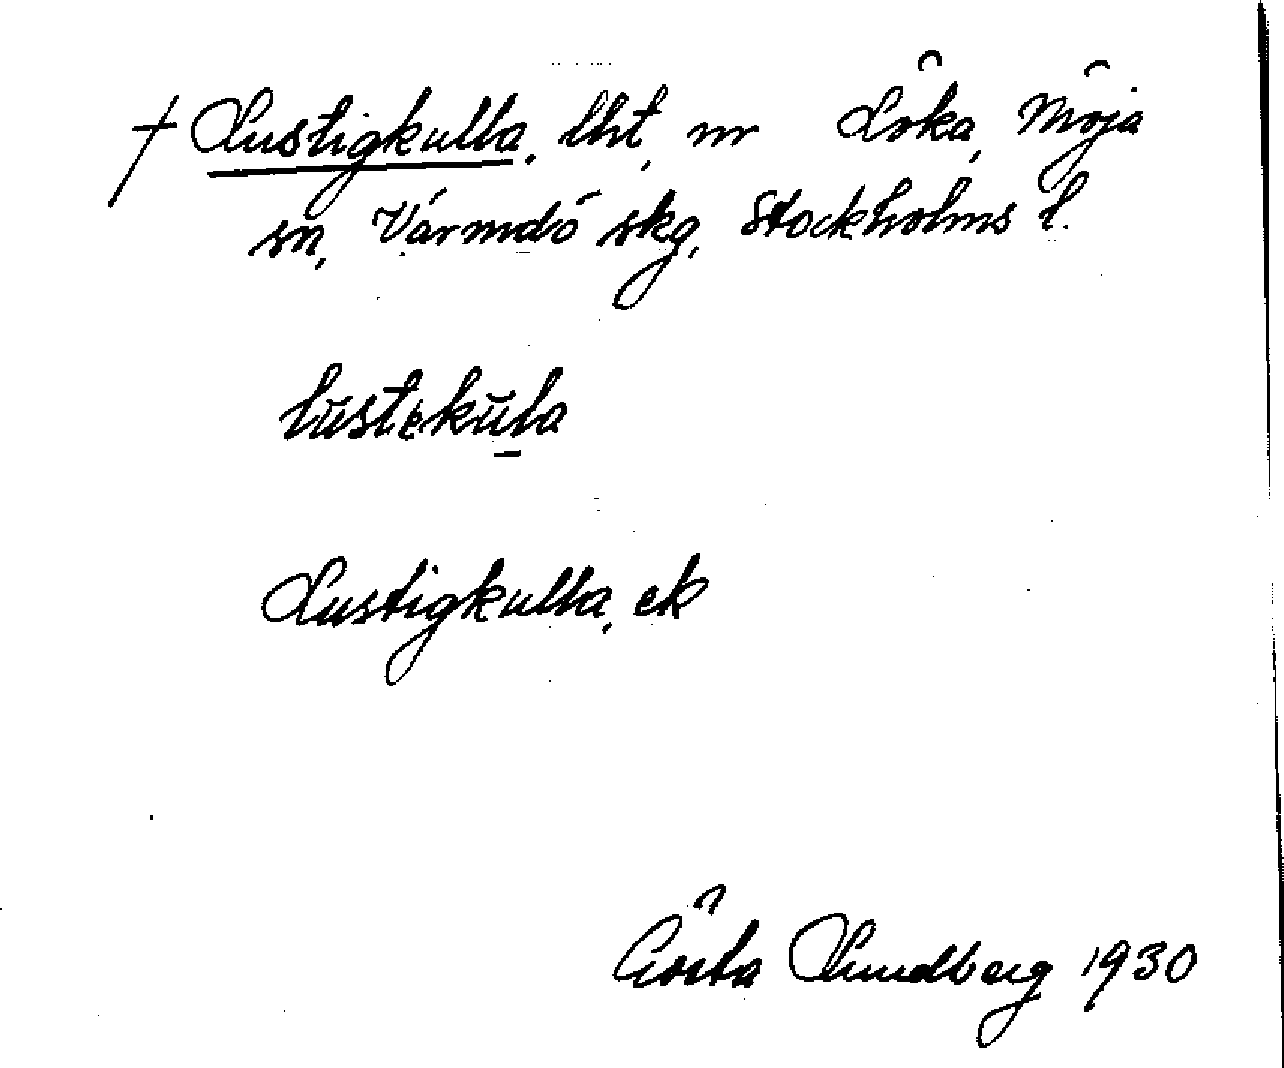 † Lustigkulla, lht, nr Löka, Möja
sn, Värmdö skg, Stockholms l.
Lustigkulla, ek
Gösta Lundberg 1930